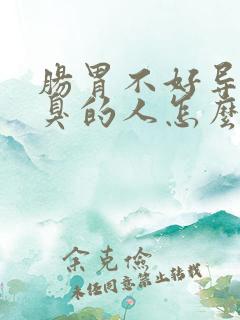 腸胃不好
臭的人怎麼
余克儉
未经同意禁止转载